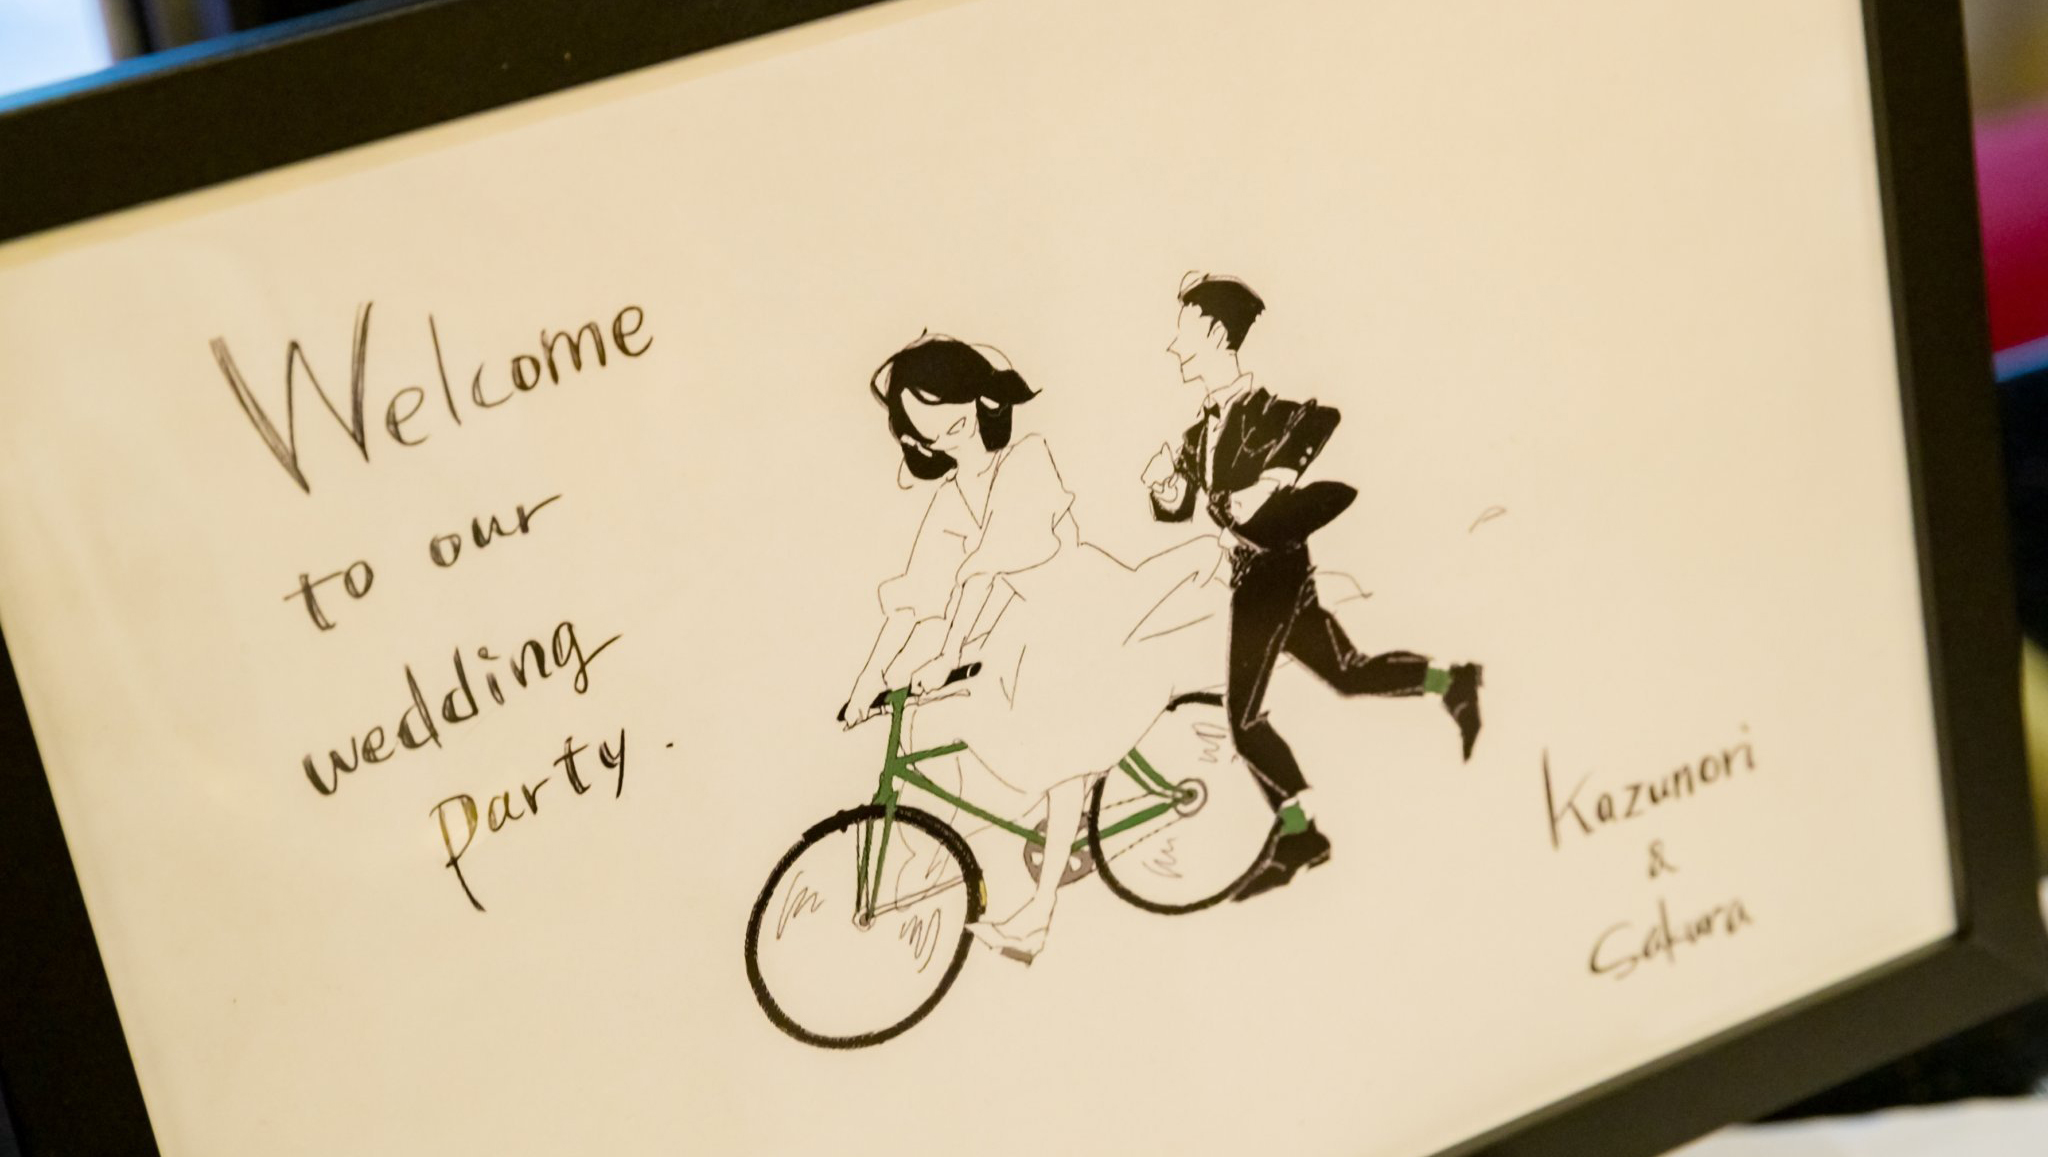 Welcome
to our
wedding
party.
Kazunori
&
Sakura